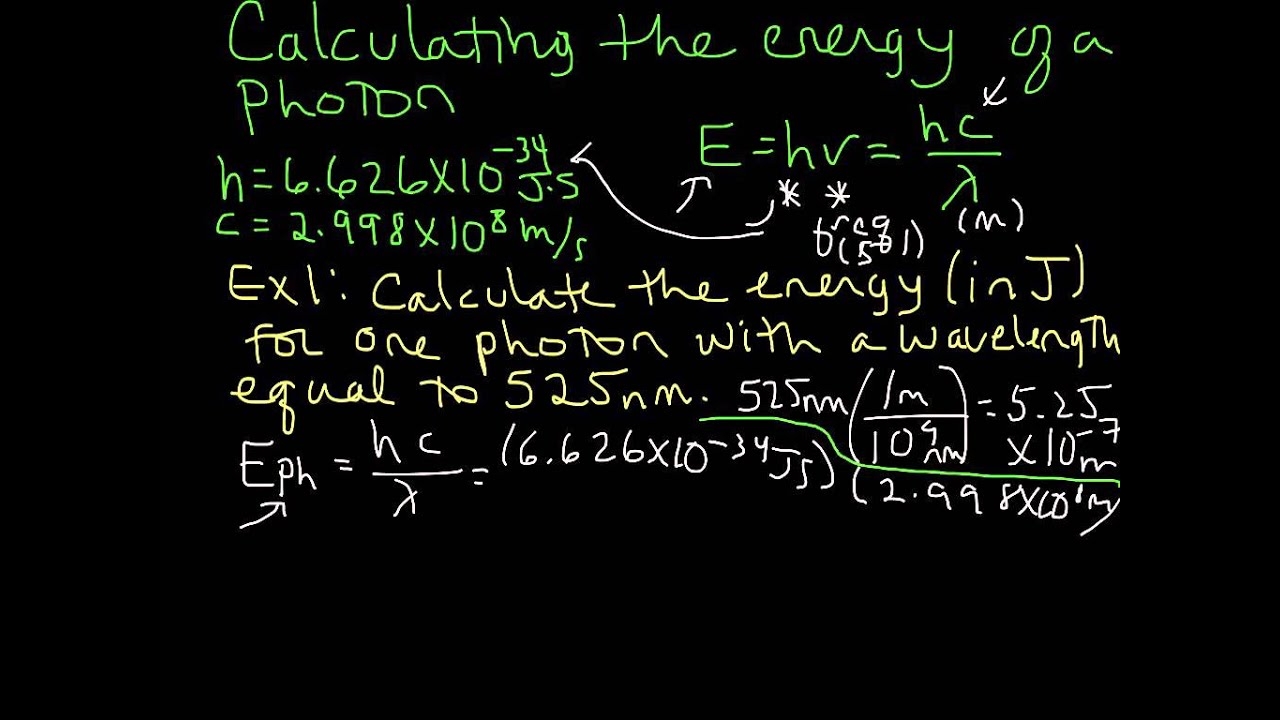 Calculating the energy of a
photon
E = hν = hc/λ
h = 6.626×10⁻³⁴ J·s
c = 2.998×10⁸ m/s
* *
freq (m)
Ex1: Calculate the energy (in J)
for one photon with a wavelength
equal to 525nm.
525nm (1m/10⁹nm) = 5.25 ×10⁻⁷m
Eph = hc/λ = (6.626×10⁻³⁴ Js) (2.998×10⁸ m/